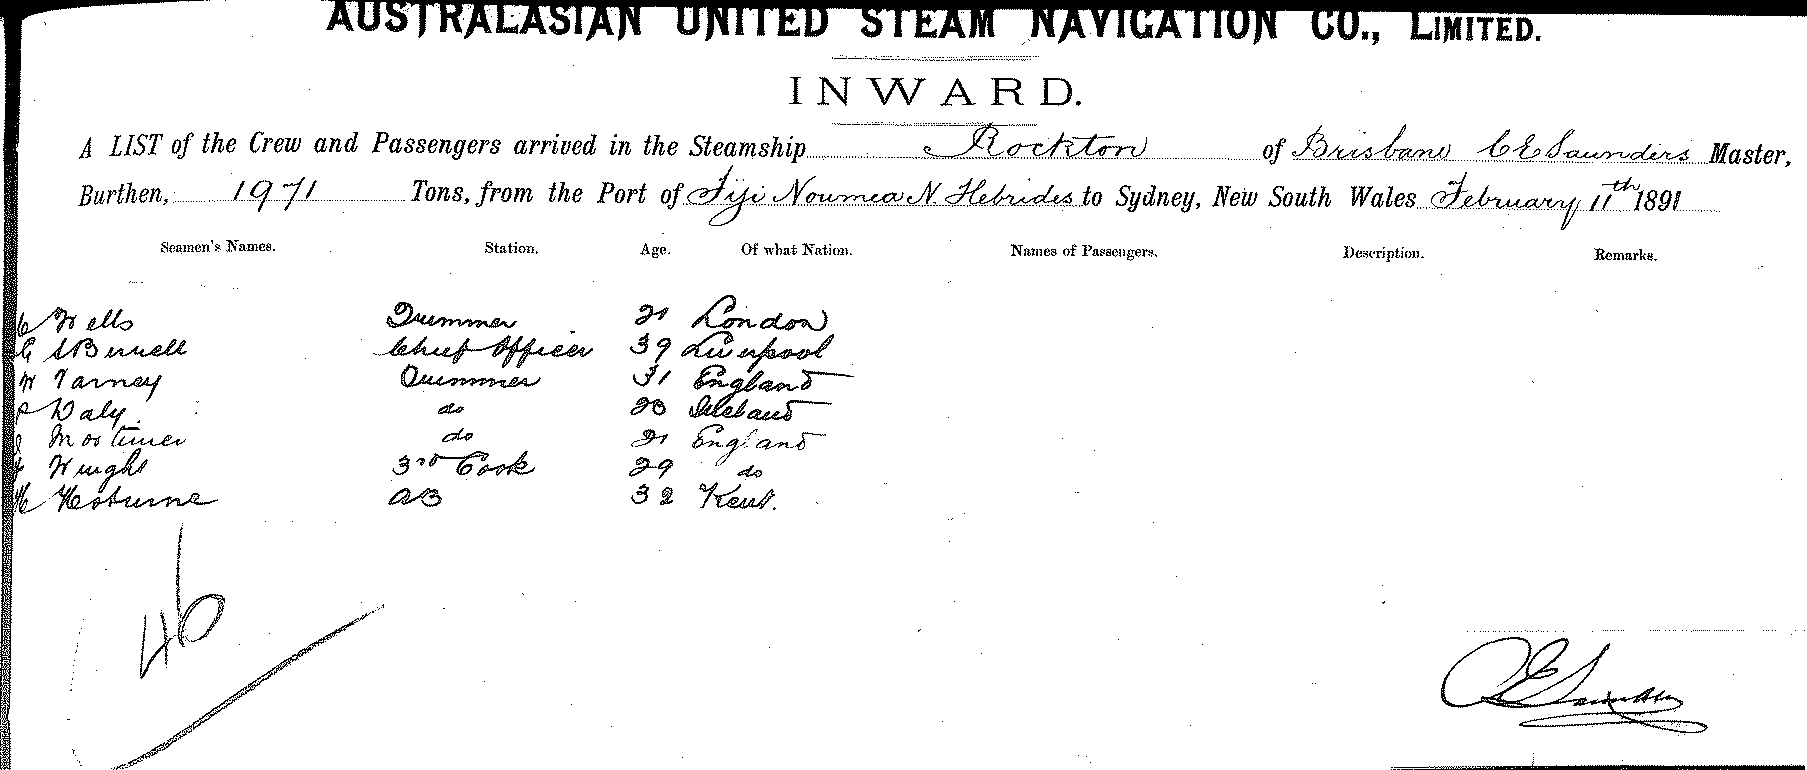 AUSTRALASIAN UNITED STEAM NAVIGATION CO., LIMITED.
INWARD.
A LIST of the Crew and Passengers arrived in the Steamship Rockton of Brisbane C E Saunders Master,
Burthen, 1971 Tons, from the Port of Fiji Noumea N Hebrides to Sydney, New South Wales February 11th 1891
Seamen's Names. Station. Age. Of what Nation. Names of Passengers. Description. Remarks.
C Wells Trimmer 21 London
Chief Officer 39 Liverpool
W Varney Trimmer 31 England
P Daly do 23 Ireland
Mortimer do 21 England
Wright 3rd Cook 29 do
H AB 32 Kent.
46
C E Saunders